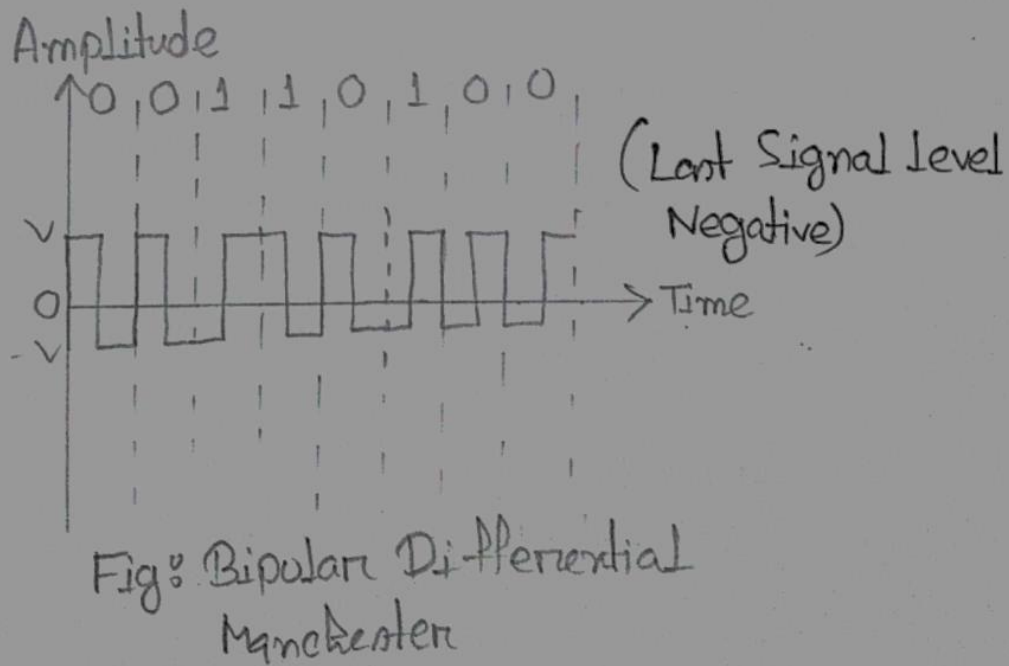 Amplitude
0 0 1 1 0 1 0 0
(Last Signal level
Negative)
V
0
Time
-V
Fig: Bipolar Differential
Manchester